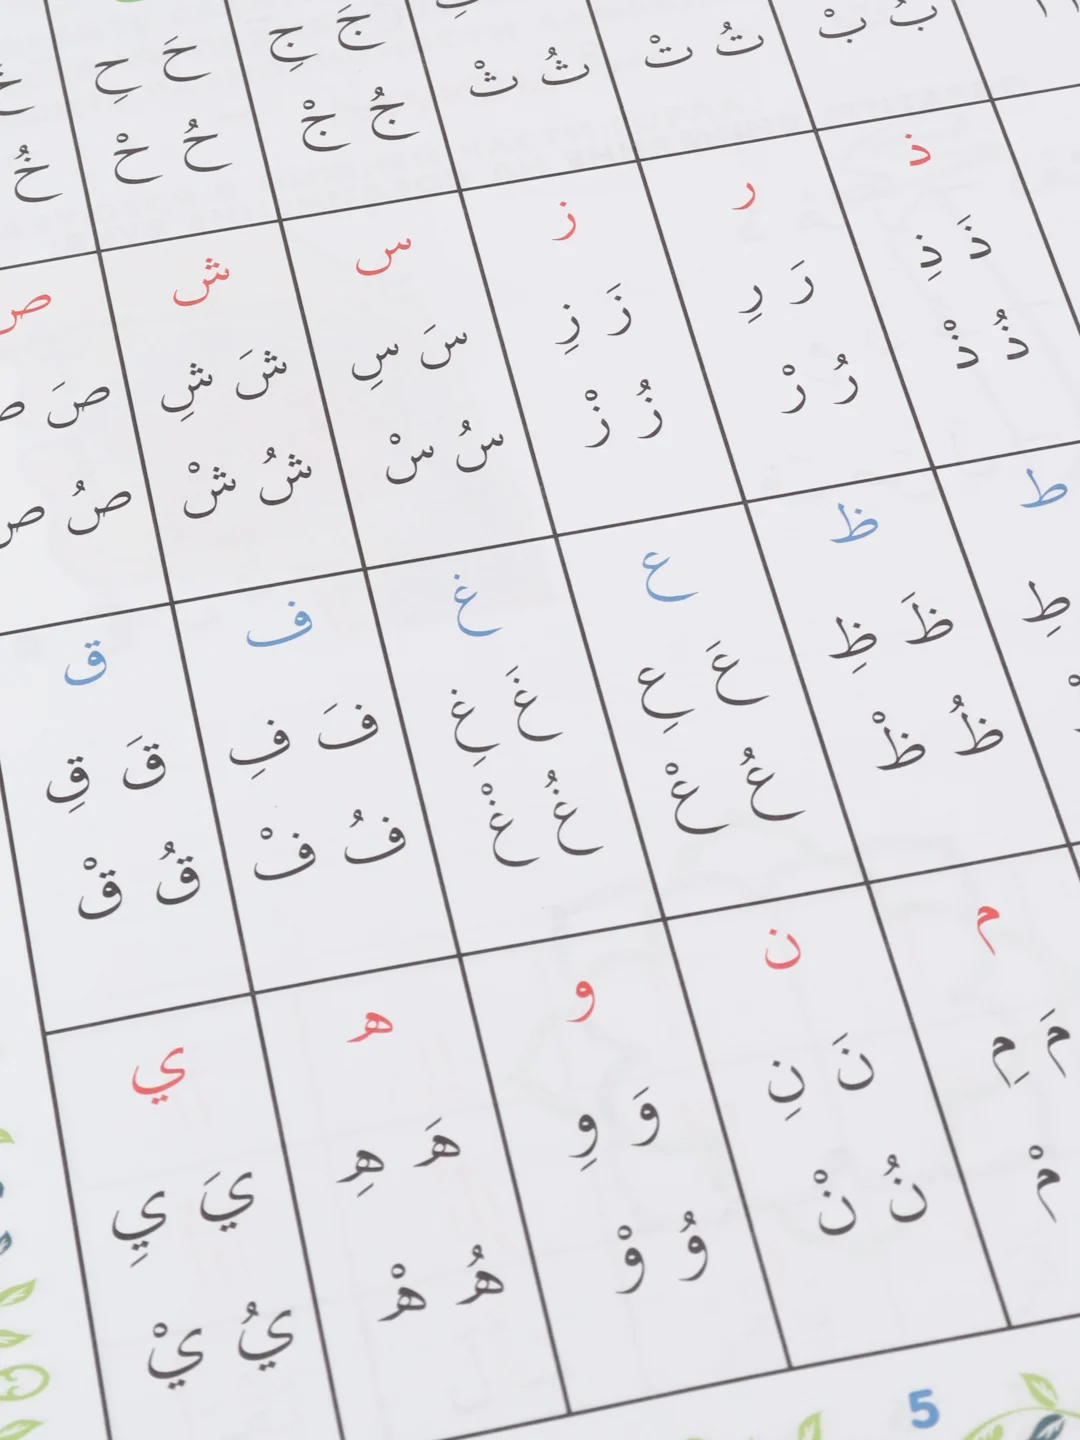 بُ بْ
تُ تْ
ثُ ثْ
جَ جِ
جُ جْ
حَ حِ
حُ حْ
خُ
ذ
ذَ ذِ
ذُ ذْ
ر
رَ رِ
رُ رْ
ز
زَ زِ
زُ زْ
س
سَ سِ
سُ سْ
ش
شَ شِ
شُ شْ
ص
صَ
صُ
ط
طِ
ظ
ظَ ظِ
ظُ ظْ
ع
عَ عِ
عُ عْ
غ
غَ غِ
غُ غْ
ف
فَ فِ
فُ فْ
ق
قَ قِ
قُ قْ
م
مَ مِ
مْ
ن
نَ نِ
نُ نْ
و
وَ وِ
وُ وْ
ه
هَ هِ
هُ هْ
ي
يَ يِ
يُ يْ
5